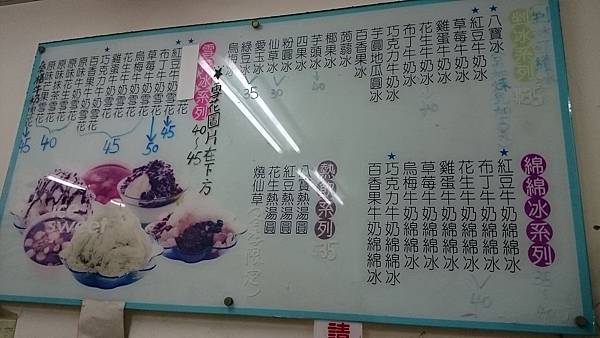 剉冰系列
35
★八寶冰
★紅豆牛奶冰
草莓牛奶冰
雞蛋牛奶冰
花生牛奶冰
布丁牛奶冰
★巧克力牛奶冰
芋圓地瓜圓冰
百香果冰
蒟蒻冰
椰果冰
芋頭冰
四果冰
粉圓冰
仙草冰
愛玉冰
綠豆冰
35
30
40
40
綿綿冰系列
★紅豆牛奶綿綿冰
布丁牛奶綿綿冰
花生牛奶綿綿冰
雞蛋牛奶綿綿冰
草莓牛奶綿綿冰
烏梅牛奶綿綿冰
★巧克力牛奶綿綿冰
百香果牛奶綿綿冰
40
熱飲系列
35
八寶熱湯圓
紅豆熱湯圓
花生熱湯圓
燒仙草
雪花冰系列
40~45
★雪花圖片在下方
紅豆牛奶雪花
布丁牛奶雪花
★草莓牛奶雪花
烏梅牛奶雪花
花生牛奶雪花
雞蛋牛奶雪花
巧克力牛奶雪花
百香果牛奶雪花
原味牛奶雪花
45
45
50
45
40
45
sweet
請